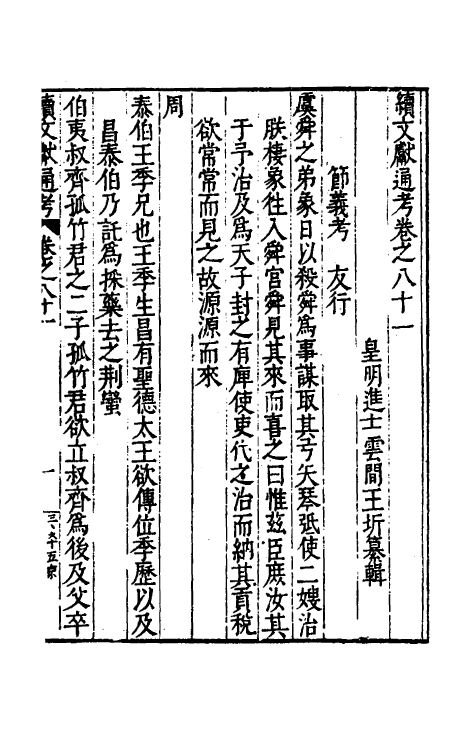 續文獻通考卷之八十一
皇明進士雲間王圻纂輯
節義考　友行
虞舜之弟象日以殺舜爲事謀取其弓矢琴弤使二嫂治
朕棲象徃入舜宮舜見其來而喜之曰惟玆臣庶汝其
于予治及爲天子封之有庳使吏代之治而納其貢稅
欲常常而見之故源源而來
周
泰伯王季兄也王季生昌有聖德太王欲傳位季歷以及
昌泰伯乃託爲採藥去之荆蠻
伯夷叔齊孤竹君之二子孤竹君欲立叔齊爲後及父卒
續文獻通考　卷之八十一　一